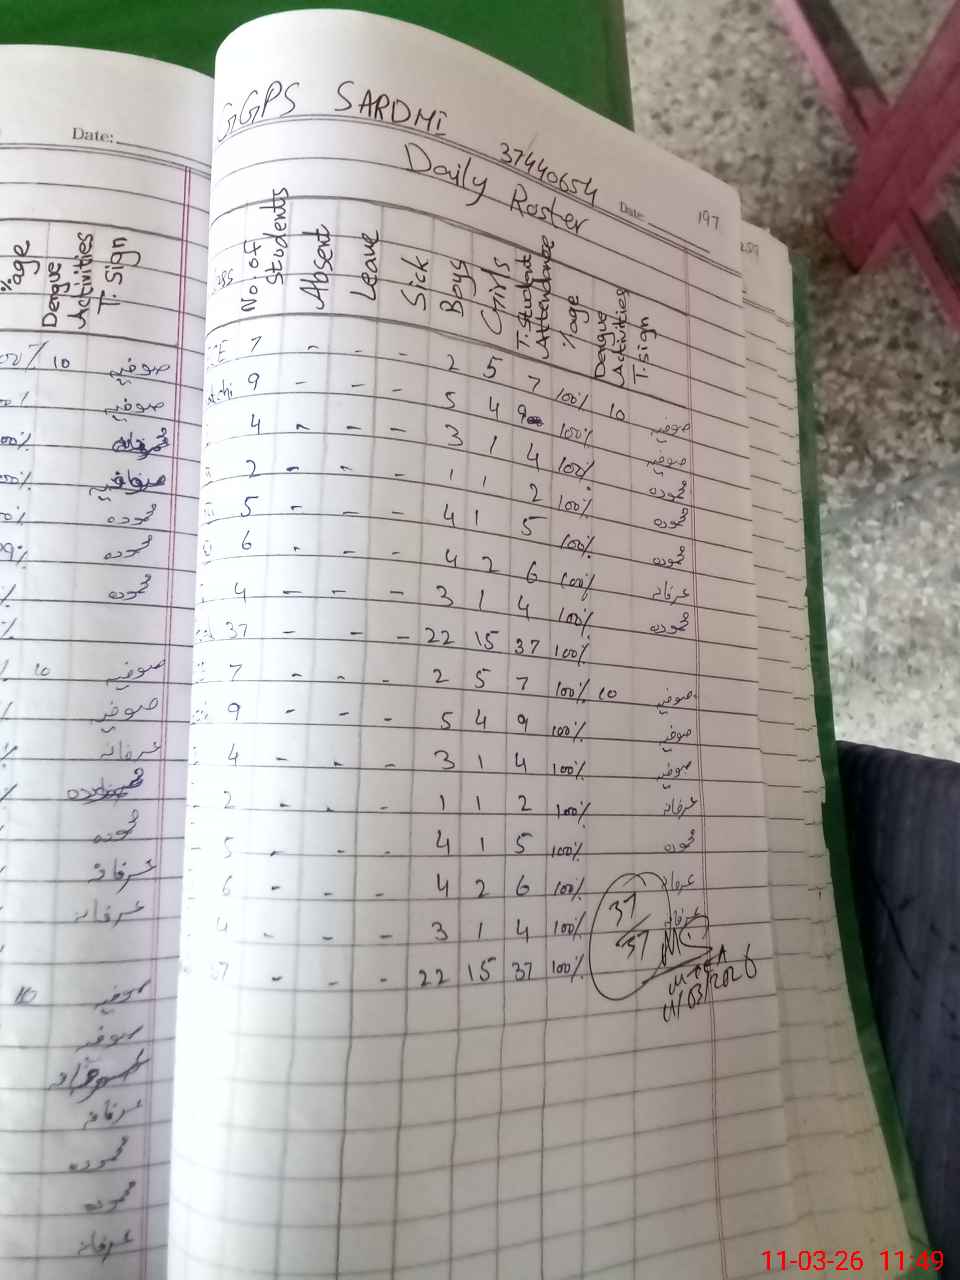 Date:
%age
Dengue Activities
T. Sign
10 صوفیہ
صوفیہ
محمودہ
محمودہ
محمودہ
10 صوفیہ
صوفیہ
عرفانہ
محمودہ
عرفانہ
عرفانہ
10 صوفیہ
صوفیہ
عرفانہ
محمودہ
محمودہ
عرفانہ
GGPS SARDHI
37440654
Date
197
259
Daily Roster
No. of Students Absent Leave Sick Boys Girls T. Student Attendance %age Dengue Activities T. Sign
7 - - - 2 5 7 100% 10 صوفیہ
9 - - - 5 4 9 100% صوفیہ
4 - - - 3 1 4 100% محمودہ
2 - - - 1 1 2 100% محمودہ
5 - - - 4 1 5 100% محمودہ
6 - - - 4 2 6 100% عرفانہ
4 - - - 3 1 4 100% محمودہ
37 - - - 22 15 37 100%
7 - - - 2 5 7 100% 10 صوفیہ
9 - - - 5 4 9 100% صوفیہ
4 - - - 3 1 4 100% صوفیہ
2 - - - 1 1 2 100% عرفانہ
5 - - - 4 1 5 100% محمودہ
6 - - - 4 2 6 100% عرفانہ
4 - - - 3 1 4 100% عرفانہ
37 - - - 22 15 37 100%
37/37
MEA
11/03/2026
11-03-26 11:49